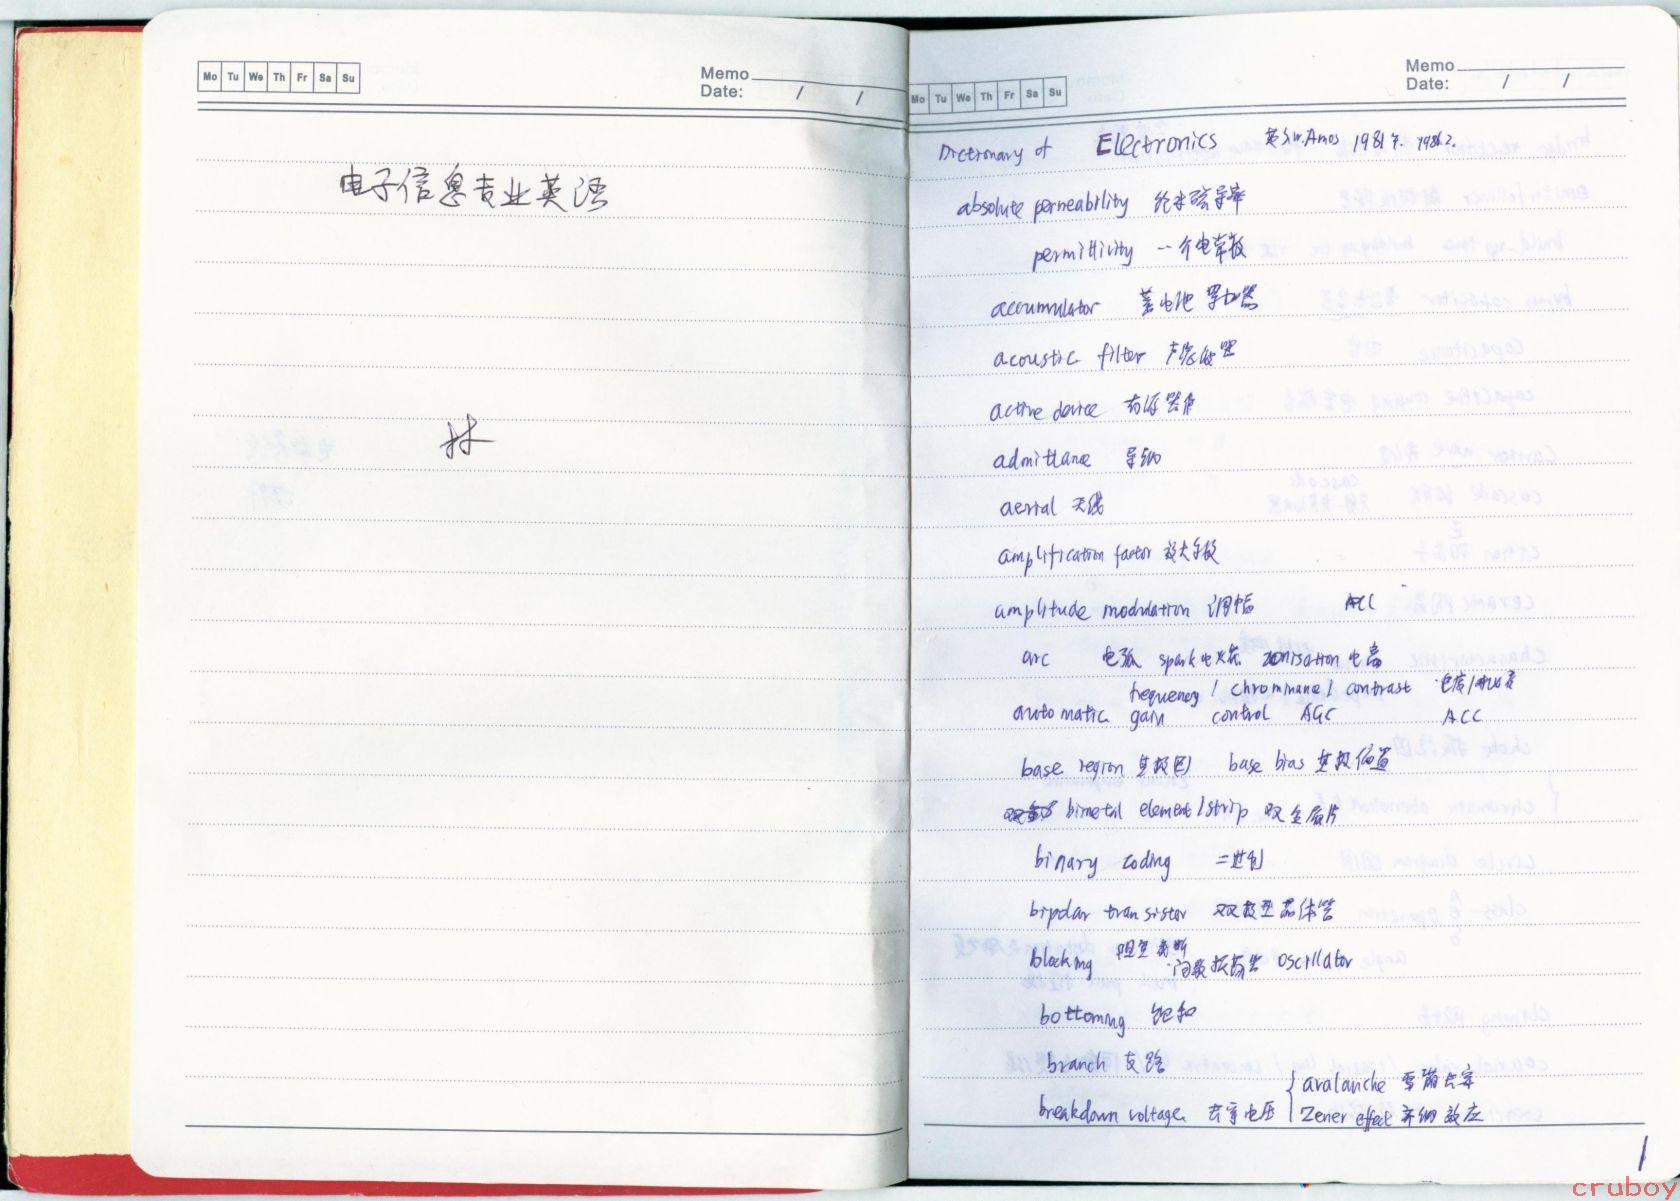 Mo Tu We Th Fr Sa Su
Memo
Date: / /
电子信息专业英语
林
Mo Tu We Th Fr Sa Su
Memo
Date: / /
Dictionary of Electronics 英 S.W.Amos 1981年. 1986.2.
absolute permeability 绝对磁导率
permittivity 一 介电常数
accumulator 蓄电池 累加器
acoustic filter 声滤波器
active device 有源器件
admittance 导纳
aerial 天线
amplification factor 放大系数
amplitude modulation 调幅 ACC
arc 电弧 spark 电火花 ionisation 电离
frequency / chrominance / contrast
automatic gain control AGC ACC
base region 基极区 base bias 基极偏置
bimetal element/strip 双金属片
binary coding 二进制
bipolar transistor 双极型晶体管
blocking 阻塞 间歇振荡器 oscillator
bottoming 饱和
branch 支路
breakdown voltage 击穿电压 { avalanche 雪崩击穿
Zener effect 齐纳效应
1
cruboy